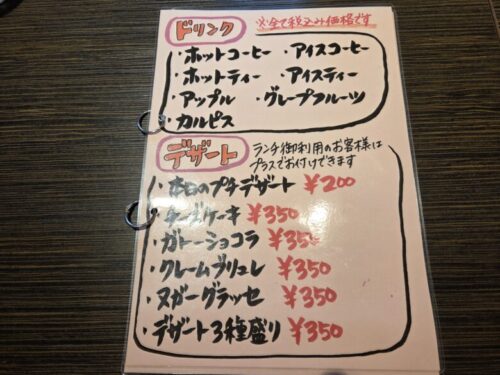 ドリンク ※全て税込み価格です
・ホットコーヒー ・アイスコーヒー
・ホットティー ・アイスティー
・アップル ・グレープフルーツ
・カルピス
デザート ランチ御利用のお客様は
プラスでお付けできます
・本日のプチデザート ¥200
・チーズケーキ ¥350
・ガトーショコラ ¥350
・クレームブリュレ ¥350
・ヌガーグラッセ ¥350
・デザート3種盛り ¥350